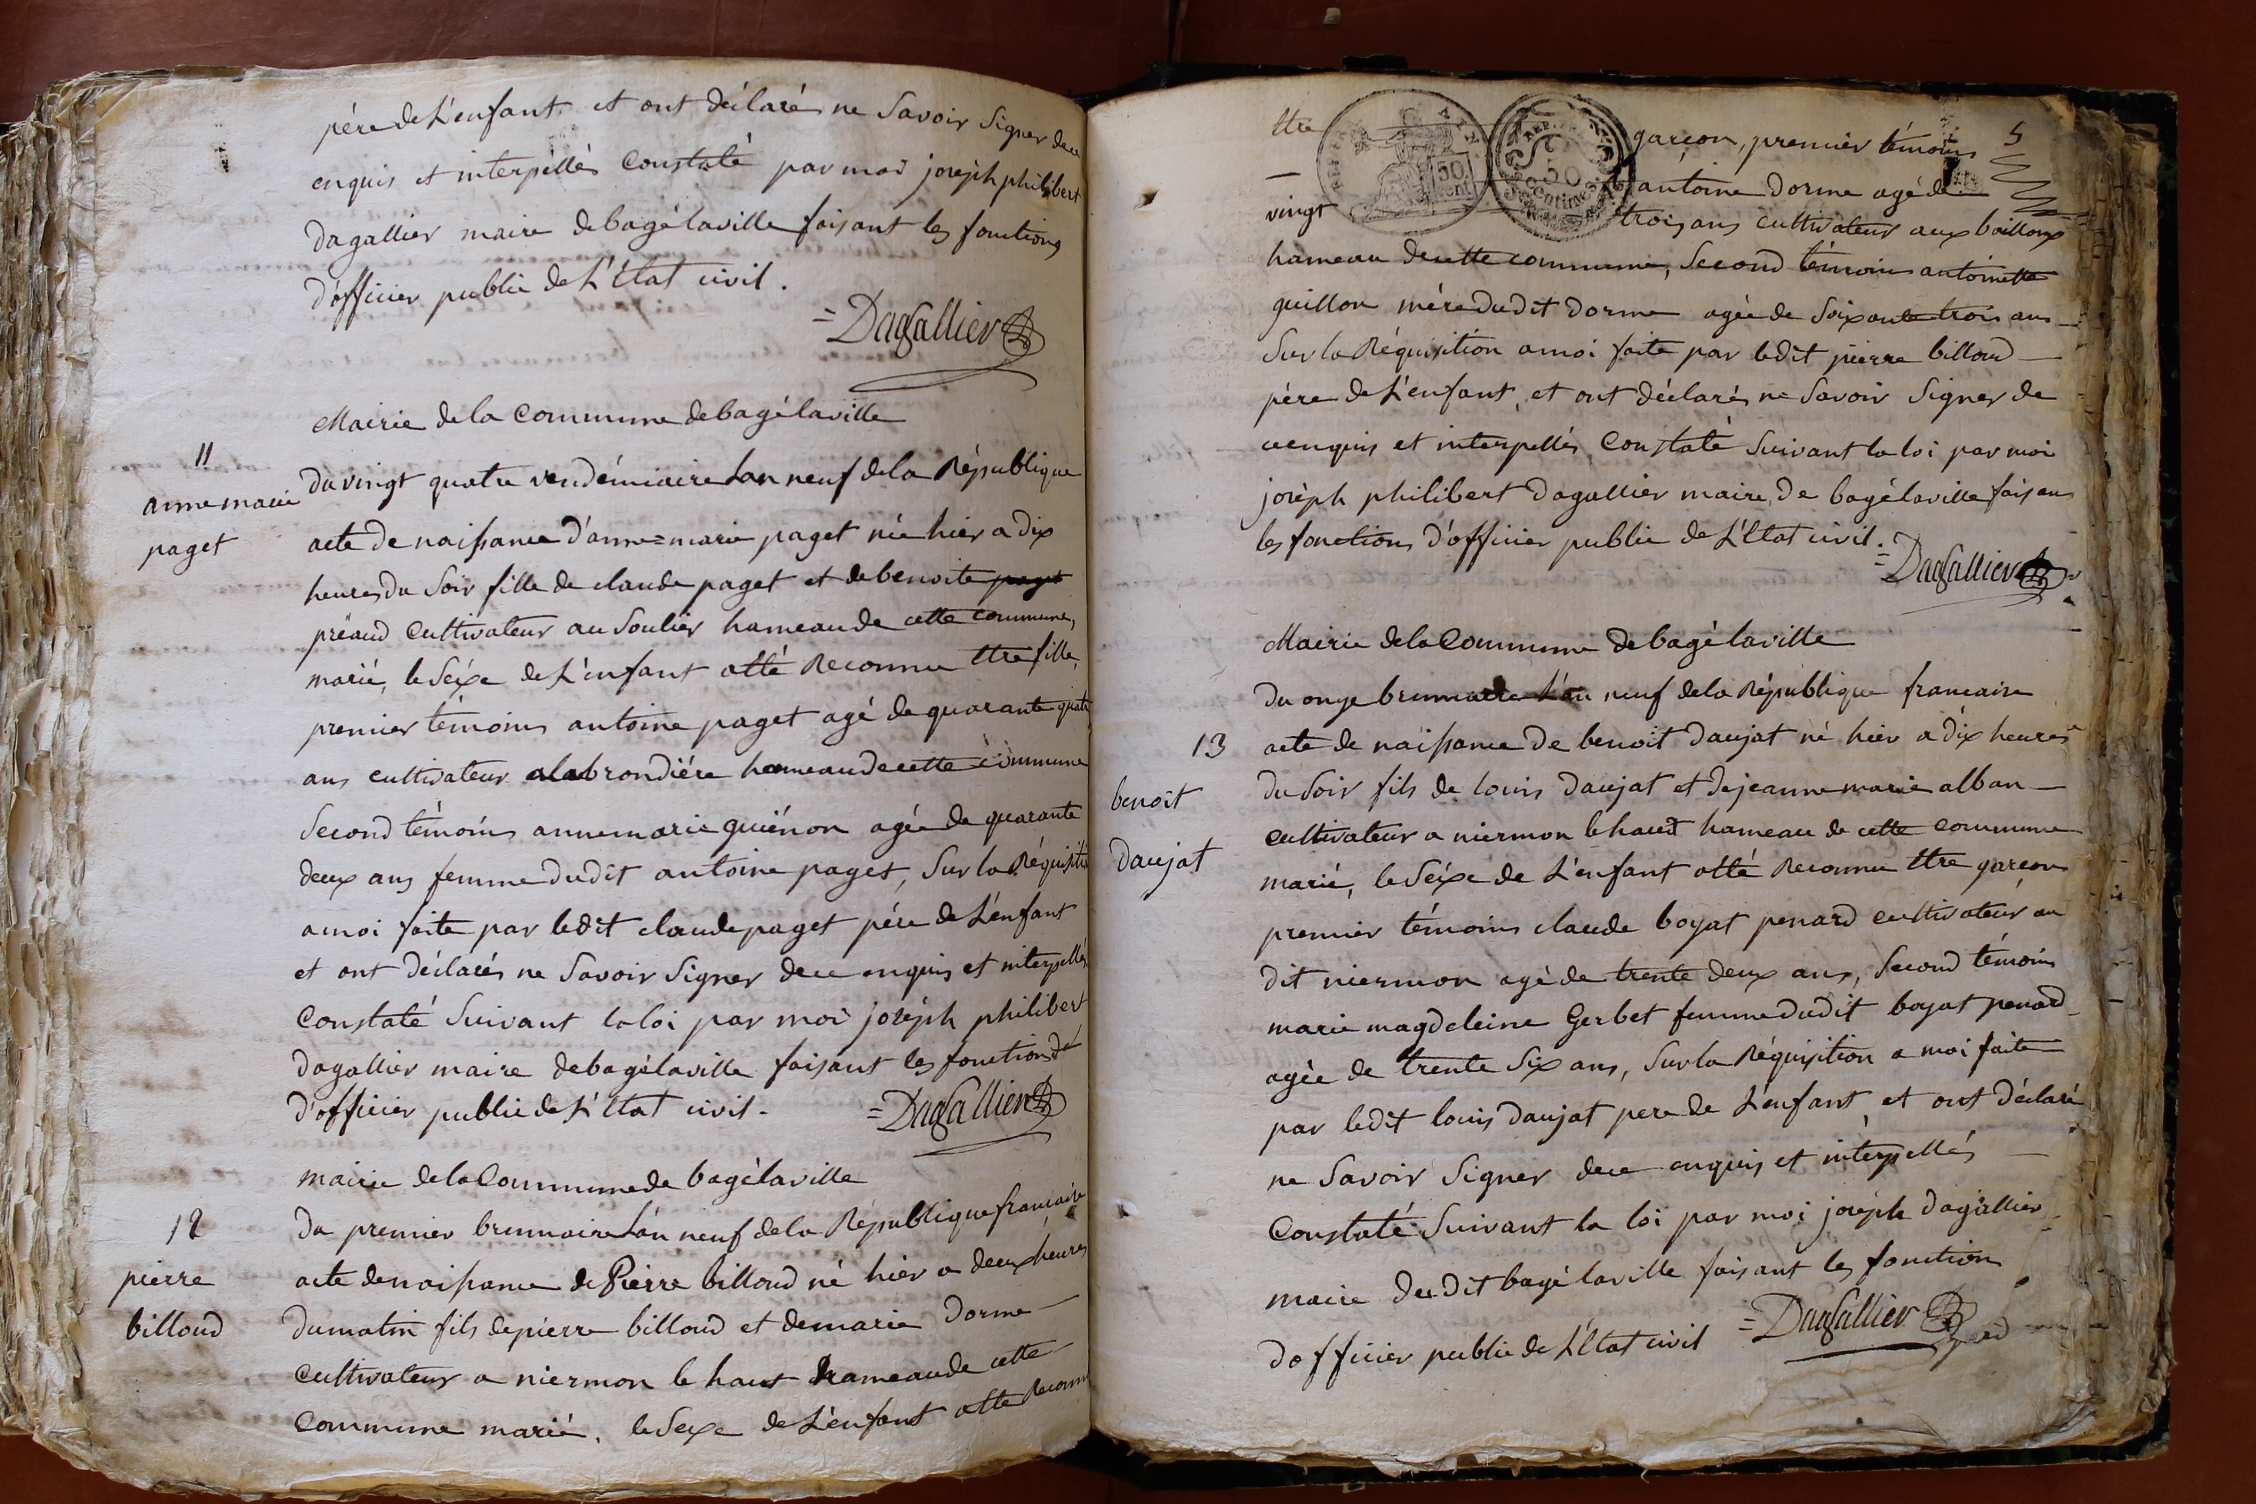 père de L'enfant et ont déclaré ne Savoir Signer de ce
enquis et interpéllés Constaté par moi joséph philibert
dagallier maire de bagélaville faisant les fonctions
d'officier public de L'Etat civil.
=Dagallier
Mairie de la Commune de bagélaville
11
anne marie
paget
du vingt quatre vendémiaire L'an neuf de la République
acte de naissance d'anne=marie paget née hier a dix
heures du Soir fille de claude paget et de benoite paget
préaud Cultivateur au Soulier hameau de cette commune,
marié, le Séxe de L'enfant atté Reconnu Etre fille,
premier témoins antoine paget agé de quarante quatre
ans cultivateur alabrondiére hameau de cette commune
Second témoins anne marie guiénon agée de quarante
deux ans femme dudit antoine paget, Sur la Réquisition
a moi faite par ledit claude paget pére de L'enfant
et ont déclarés ne Savoir Signer de ce enquis et interpellés
Constaté Suivant la loi par moi joséph philibert
dagallier maire de bagélaville faisant les fonction d'
d'officier public de L'Etat civil.
=Dagallier
mairie de la Commune de bagélaville
12
pierre
billoud
du premier brumaire L'an neuf de la République francaise
acte de naissance de Pierre billoud né hier a deux heures
du matin fils de pierre billoud et de marie dorme
Cultivateur a niermon le haut hameau de cette
Commune marié, le Sexe de L'enfant atté Reconnu
Etre garcon, premier témoins
5
REP. FRA.
50
Cent
50
Centimes
antoine dorme agé de
vingt trois ans cultivateur aux boilloux
hameau de cette commune, Second témoin antoinette
guillon mére dudit dorme agée de Soixante trois ans
Sur la Réquisition a moi faite par ledit pierre billoud
pére de L'enfant, et ont déclarés ne Savoir Signer de
ce enquis et interpellés, Constaté Suivant la loi par moi
joséph philibert dagallier maire de bagélaville faisans
les fonctions d'officier public de L'Etat civil.
=Dagallier
Mairie de la Commune de bagélaville
13
benoit
daujat
du onze brumaire L'an neuf de la République francaise
acte de naissance de benoit daujat né hier a dix heures
du Soir fils de louis daujat et de jeanne marie alban
cultivateur a niermon le haut hameau de cette commune
marié, le Séxe de L'enfant atté Reconnu Etre garcon
premier témoins claude boyat penard cultivateur au
dit niermon agé de trente deux ans, Second témoin
marie magdeleine Gerbet femme dudit boyat penard
agée de trente Six ans, Sur la Réquisition a moi faite
par ledit louis daujat pere de L'enfant, et ont déclaré
ne Savoir Signer de ce enquis et intérpellés
Constaté Suivant la loi par moi joséph dagallier
maire dudit bagélaville faisant les fonction
dofficier public de L'Etat civil
=Dagallier